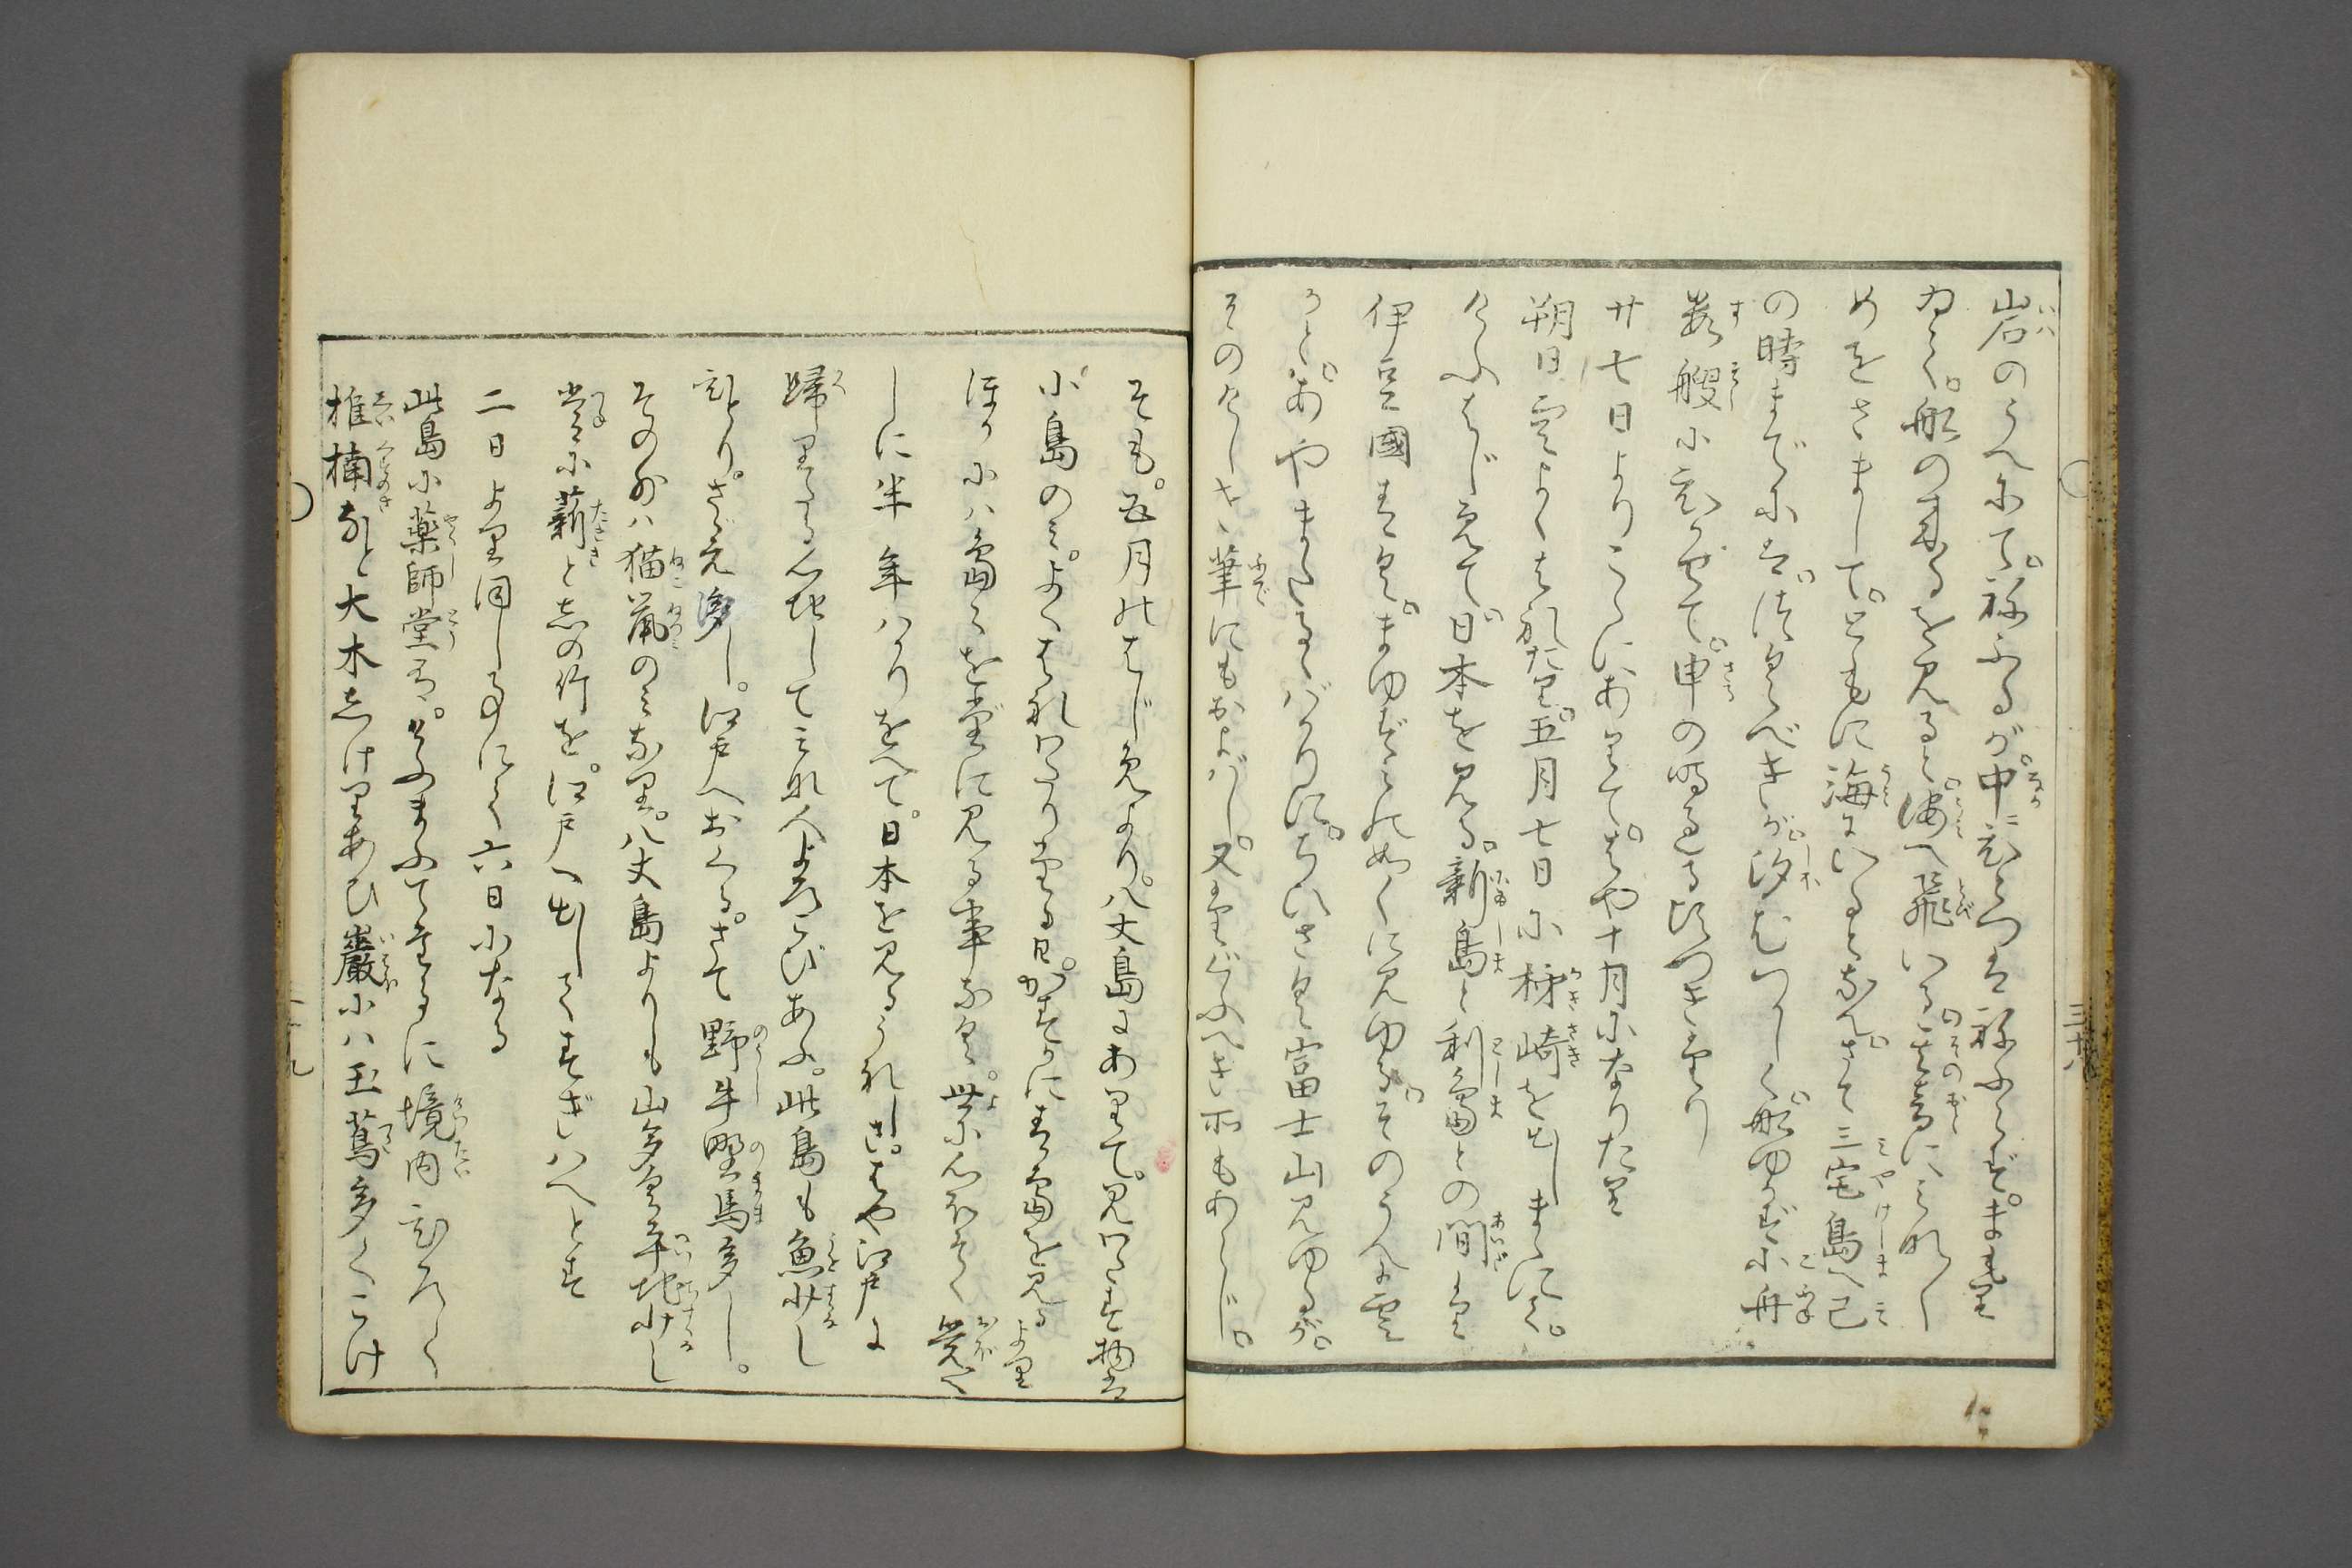 岩のうへにて。ねふるが。中にひとつはねふらず。まもり
ゐて。船の来るを見ると。海へ飛いる。其音にみなし
めをさまして。ともに海にいるとなん。さて三宅島へ巳
の時までには。つくべきが。汐むつかしく。船ゆかず小舟
数艘にひかせて。申の時過る頃つきたり
廿七日よりこゝにありて。はや十月になりたり
朔日空よくはれたり。五月七日に神崎を出しまゝにて。
けふはじめて。日本を見る。新島と利島との間より
伊豆國はるか。まゆずみの如くに見ゆる。そのうへに雲
かと。あやまたるゝばかりに。ちいさく富士山見ゆるが。
そのけしき筆にもおよばし。又たとふべき所もあらじ。
そも。五月のはじめより。八丈島にありて。見わたす物は
小島のみ。よくはれわたりたる日。かすかに青島を見るより
ほかには島らを常に見る事なく。世に心ほそく覚へ
しに半年ばかりをへて。日本を見るうれしさ。はや江戸に
歸りたる心地してみな人よろこびあふ。此島も魚少し
ひとり。さゞえ多し。江戸へおくる。さて野牛野馬多し。
その外ハ猫鼠のみなり。八丈島よりも山多く平地少し
常に薪と志の竹を。江戸へ出してすぎハへとす
二日より同し事にて六日になる
此島に薬師堂有。そのまふてたるに境内ひろく
椎楠なと大木志けりあひ巖にハ玉蔦多くこけ
三十八